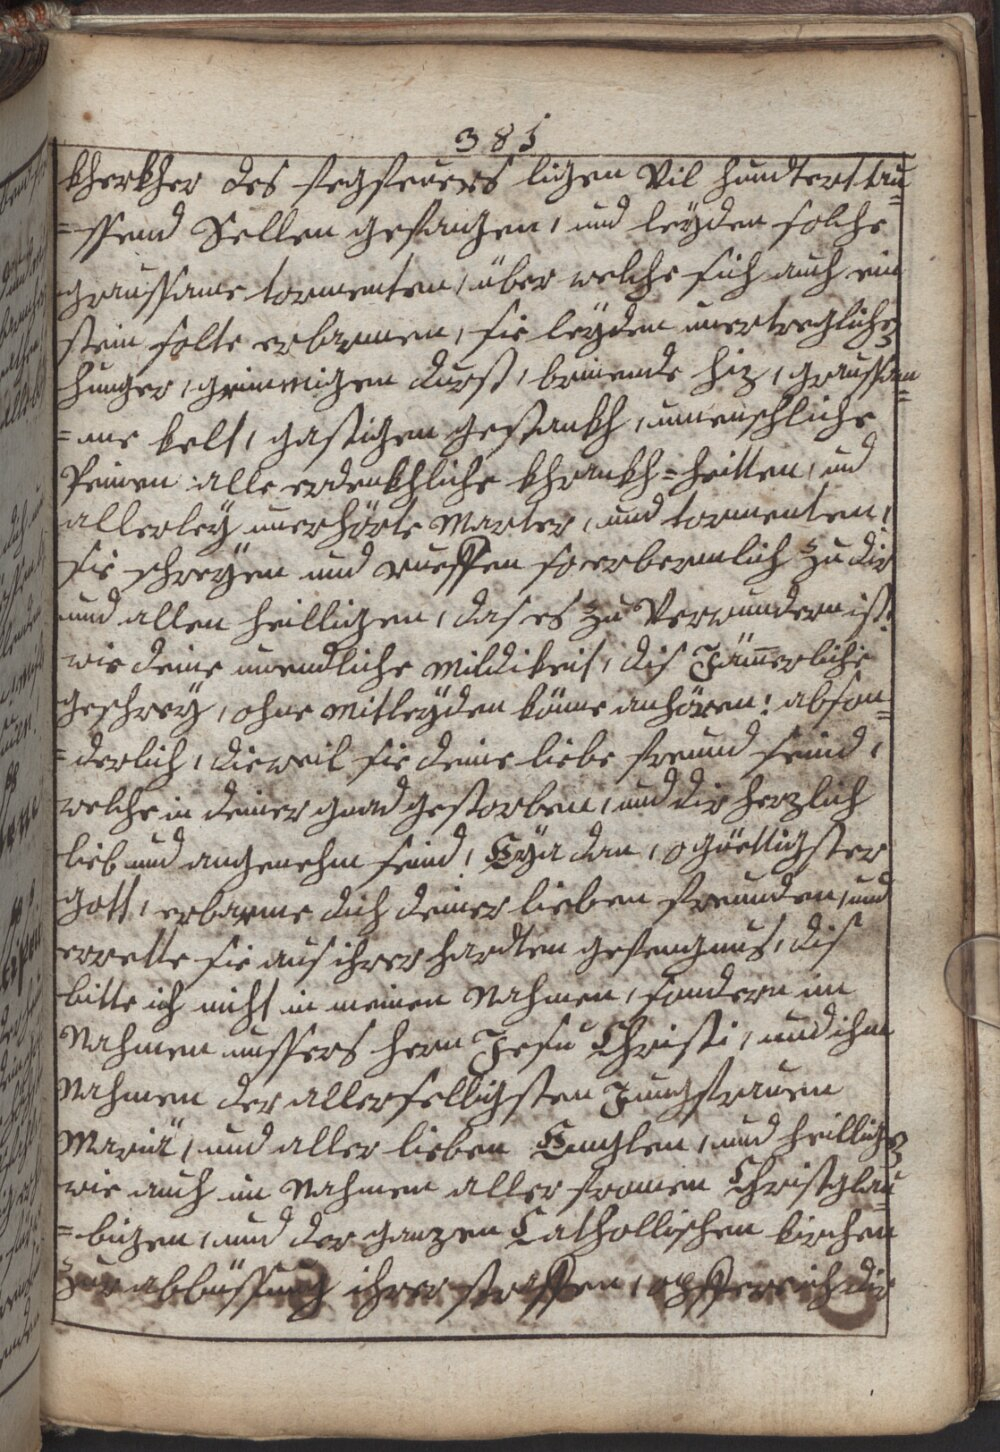 385
kherkher des fegfeuers ligen Vil hundtert tau=
=ssend Sellen gefangen, und leyden solche
graussame tormenten, über welche sich auch ein
stein solte erbarmen, sie leyden unertregliche
hunger, grimmigen durst, brinende hiz, graussam=
=me kelt, gastigen gestankh, unmenschliche
Peinen alle erdenkhliche khrankh=heitten, und
allerley unerhörte Marter, und tormenten,
sie schreyen und rueffen so erbermlich zu dir
und allen heilligen, das es zu Verwundern ist.
wie deine unendliche mildikeit, dis Jämerliche
geschrey, ohne mitleyden köne anhören! abson=
=derlich, dieweil sie deine liebe freund seind,
welche in deiner gnad gestorben, und dir herzlich
lieb und angenehm seind! Eya dan, o güettigster
gott, erbarme dich deiner lieben freunden, und
errette sie aus ihrer hardten gefengnus, dis
bitte ich nicht in meinen Nahmen, sondern im
Nahmen unssers hern Jesu Christi, und ihm
Nahmen der allerselligsten Jungfrauen
Mariä, und aller lieben Englen, und heillige
wie auch im Nahmen aller fromen Christglau=
=bigen, und der ganzen Cathollischen kirchen
zur abbüssung ihrer straffen, opffere ich dir